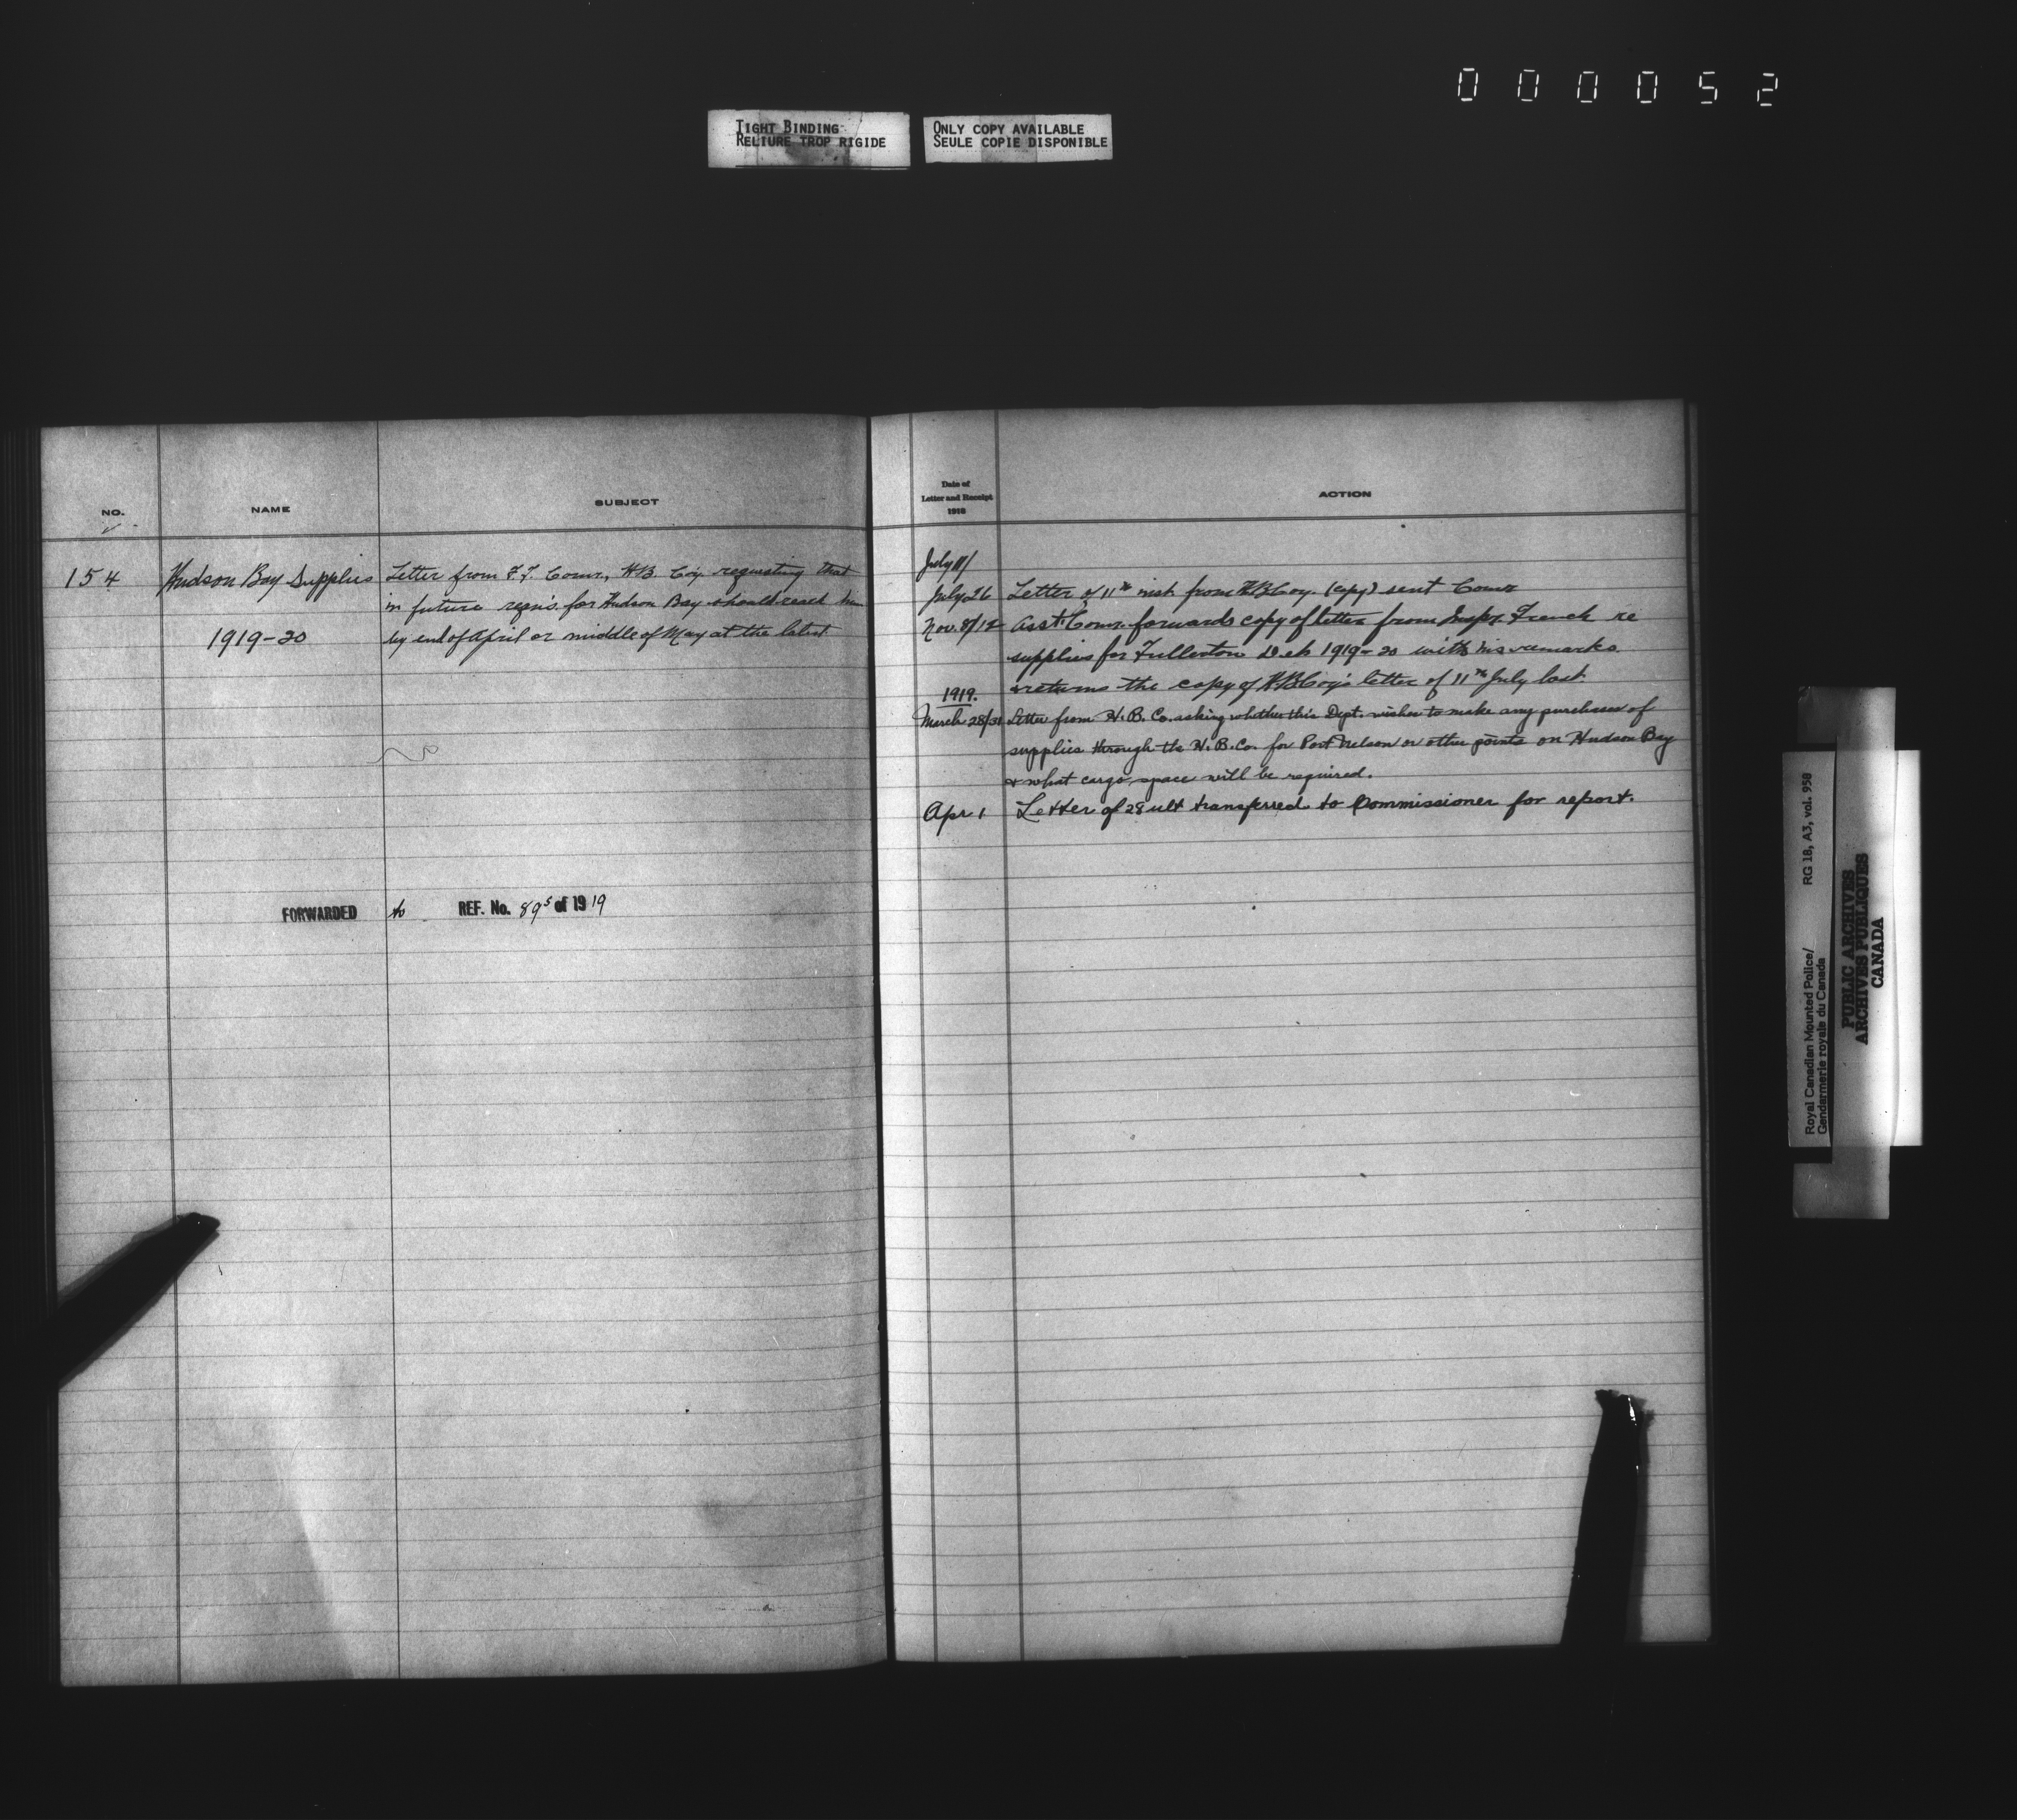 000052
TIGHT BINDING
RELIURE TROP RIGIDE
ONLY COPY AVAILABLE
SEULE COPIE DISPONIBLE
NO.
NAME
SUBJECT
154
Hudson Bay Supplies
1919-20
Letter from F.T. Comr., H.B. Co'y requesting that
in future reqn's. for Hudson Bay should reach him
by end of April or middle of May at the latest.
FORWARDED to REF. No. 89⁵ of 1919
Date of
Letter and Receipt
1918
ACTION
July 11/
July 26 Letter of 11th inst from H.B.Coy. (copy) sent Comr
Nov. 8/12 Asst. Comr. forwards copy of letter from Inspr. French re
supplies for Fullerton Det 1919-20 with his remarks
& returns the copy of H.B.Coy's letter of 11th July last.
1919.
March 28/31 Letter from H.B.Co. asking whether this Dept. wishes to make any purchases of
supplies through the H.B.Co. for Port Nelson or other points on Hudson Bay
& what cargo space will be required.
Apr 1 Letter of 28 ult transferred to Commissioner for report.
Royal Canadian Mounted Police/
Gendarmerie royale du Canada
RG 18, A3, vol. 958
PUBLIC ARCHIVES
ARCHIVES PUBLIQUES
CANADA